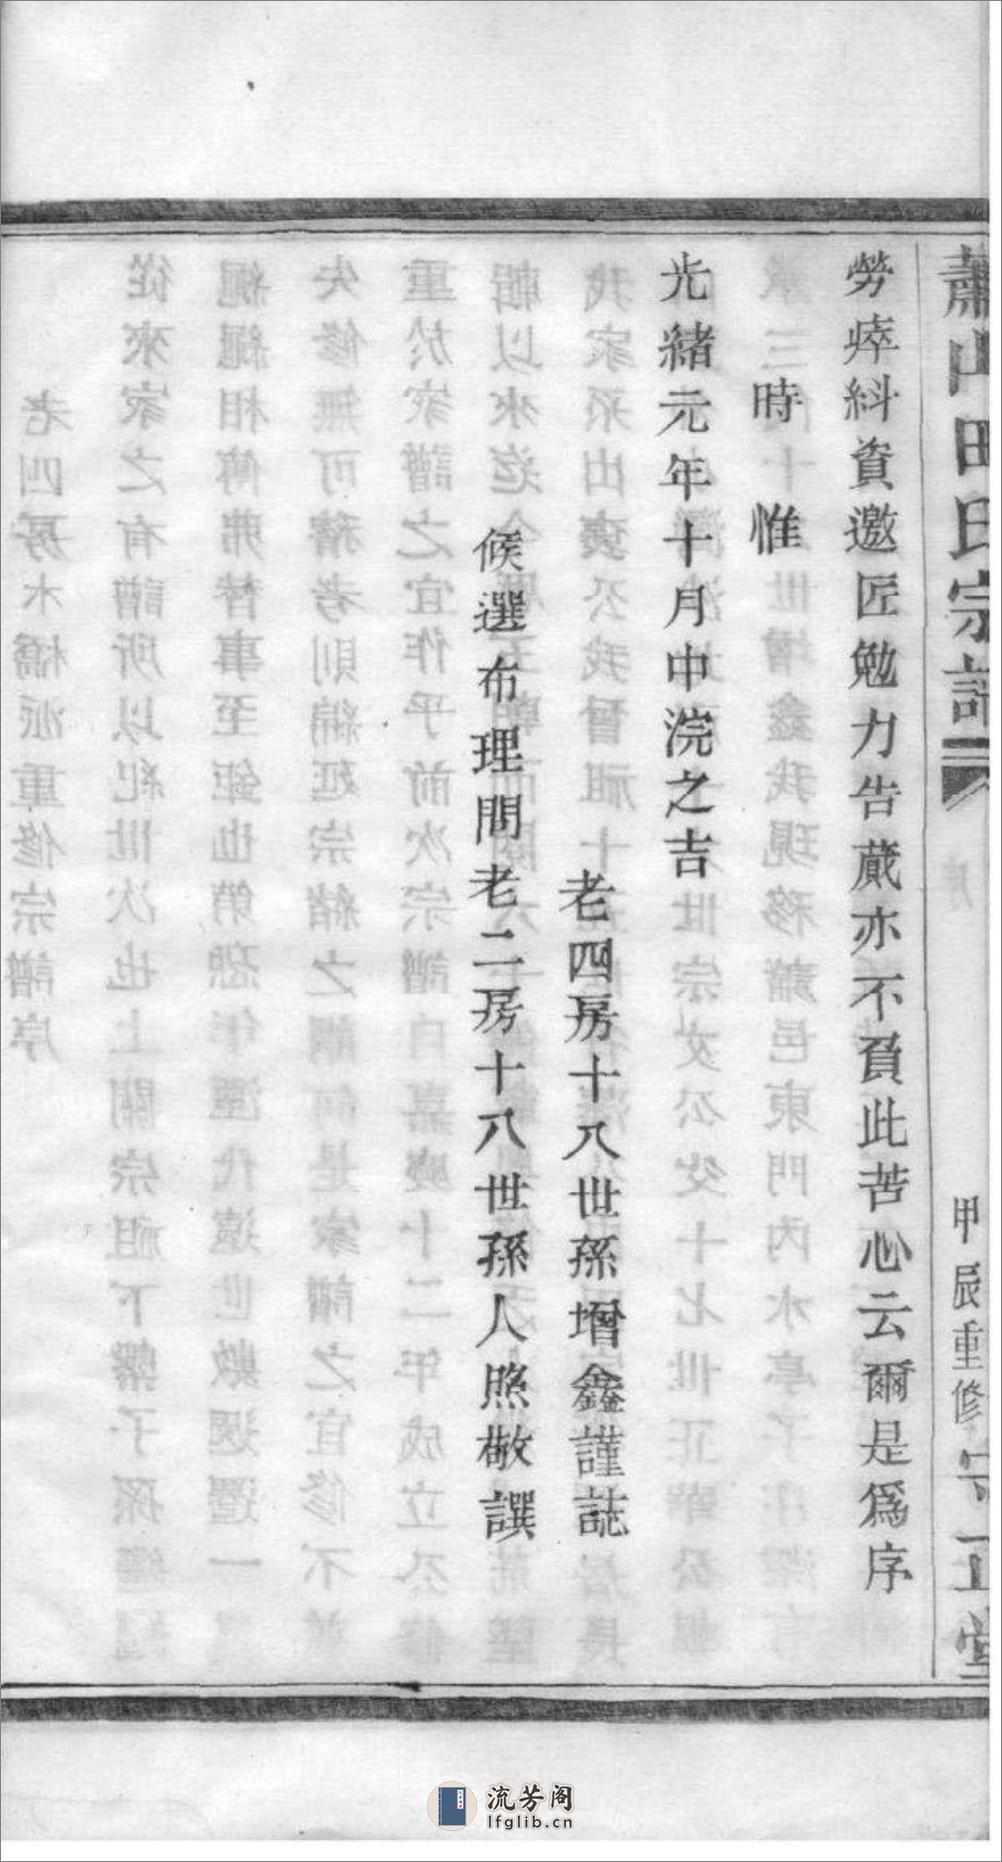 蕭山田氏宗譜
甲辰重修
勞瘁糾資邀匠勉力告蕆亦不負此苦心云爾是爲序
時惟
光緒元年十月中浣之吉
老四房十八世孫增鑫謹誌
候選布理問老二房十八世孫人熙敬譔
流芳阁
lfglib.cn